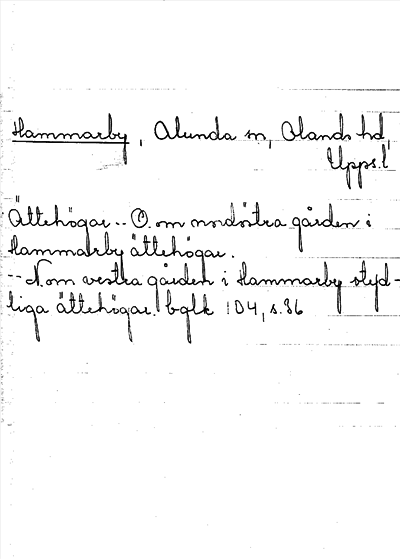 Hammarby, Alunda sn, Olands hd,
Upps.l
Ättehögar -- Ö. om nordöstra gården i
Hammarby ättehögar.
-- N. om vestra gården i Hammarby otyd-
liga ättehögar. bglk 104, s. 36